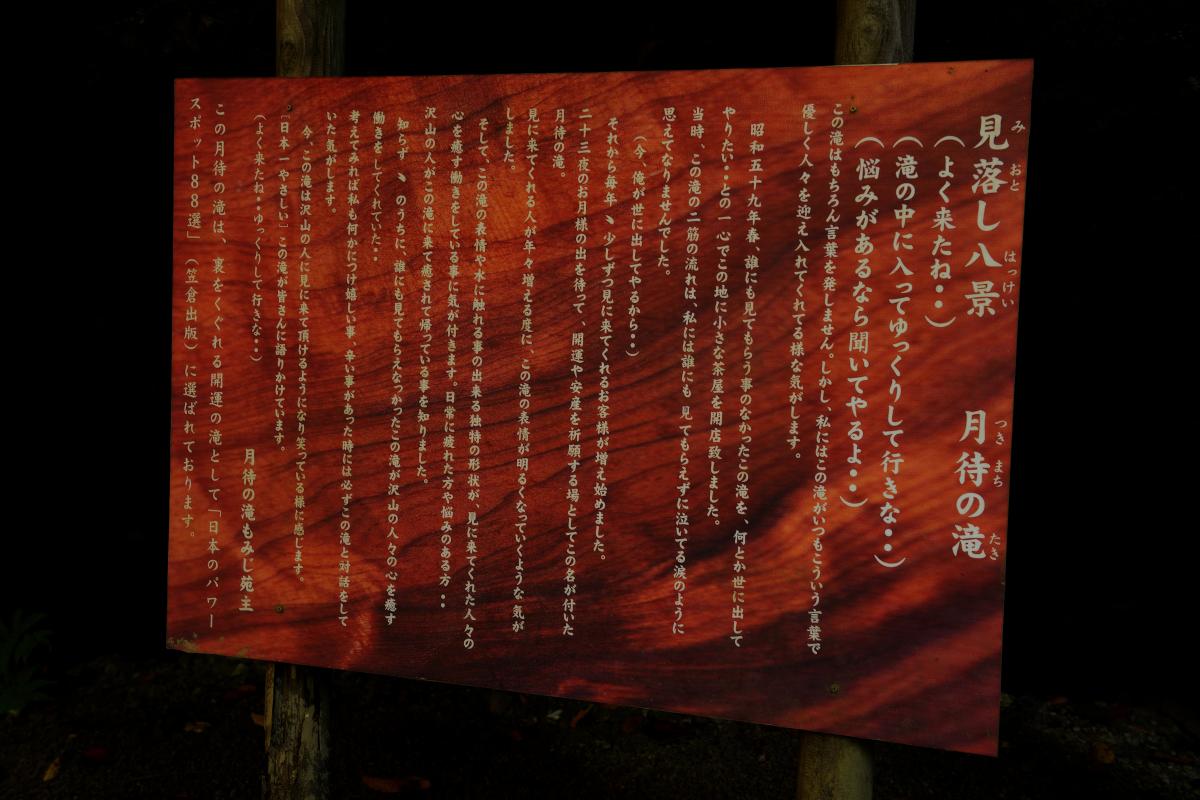 見落し八景　月待の滝
みおと はっけい つきまち たき
（よく来たね・・）
（滝の中に入ってゆっくりして行きな・・）
（悩みがあるなら聞いてやるよ・・）
この滝はもちろん言葉を発しません。しかし、私にはこの滝がいつもこういう言葉で
優しく人々を迎え入れてくれてる様な気がします。
昭和五十九年春、誰にも見てもらう事のなかったこの滝を、何とか世に出して
やりたい・・との一心でこの地に小さな茶屋を開店致しました。
当時、この滝の二筋の流れは、私には誰にも見てもらえずに泣いてる涙のように
思えてなりませんでした。
（今、俺が世に出してやるから・・）
それから毎年、少しずつ見に来てくれるお客様が増え始めました。
二十三夜のお月様の出を待って、開運や安産を祈願する場としてこの名が付いた
月待の滝。
見に来てくれる人が年々増える度に、この滝の表情が明るくなっていくような気が
しました。
そして、この滝の表情や水に触れる事の出来る独特の形状が、見に来てくれた人々の
心を癒す働きをしている事に気が付きます。日常に疲れた方や悩みのある方・・
沢山の人がこの滝に来て癒されて帰っている事を知りました。
知らず、のうちに、誰にも見てもらえなかったこの滝が沢山の人々の心を癒す
働きをしてくれていた・・
考えてみれば私も何かにつけ嬉しい事、辛い事があった時には必ずこの滝と対話をして
いた気がします。
今、この滝は沢山の人に見に来て頂けるようになり笑っている様に感じます。
［日本一やさしい］この滝が皆さんに語りかけています。
（よく来たね・・ゆっくりして行きな・・）
月待の滝もみじ苑主
この月待の滝は、裏をくぐれる開運の滝として「日本のパワー
スポット８８選」（笠倉出版）に選ばれております。